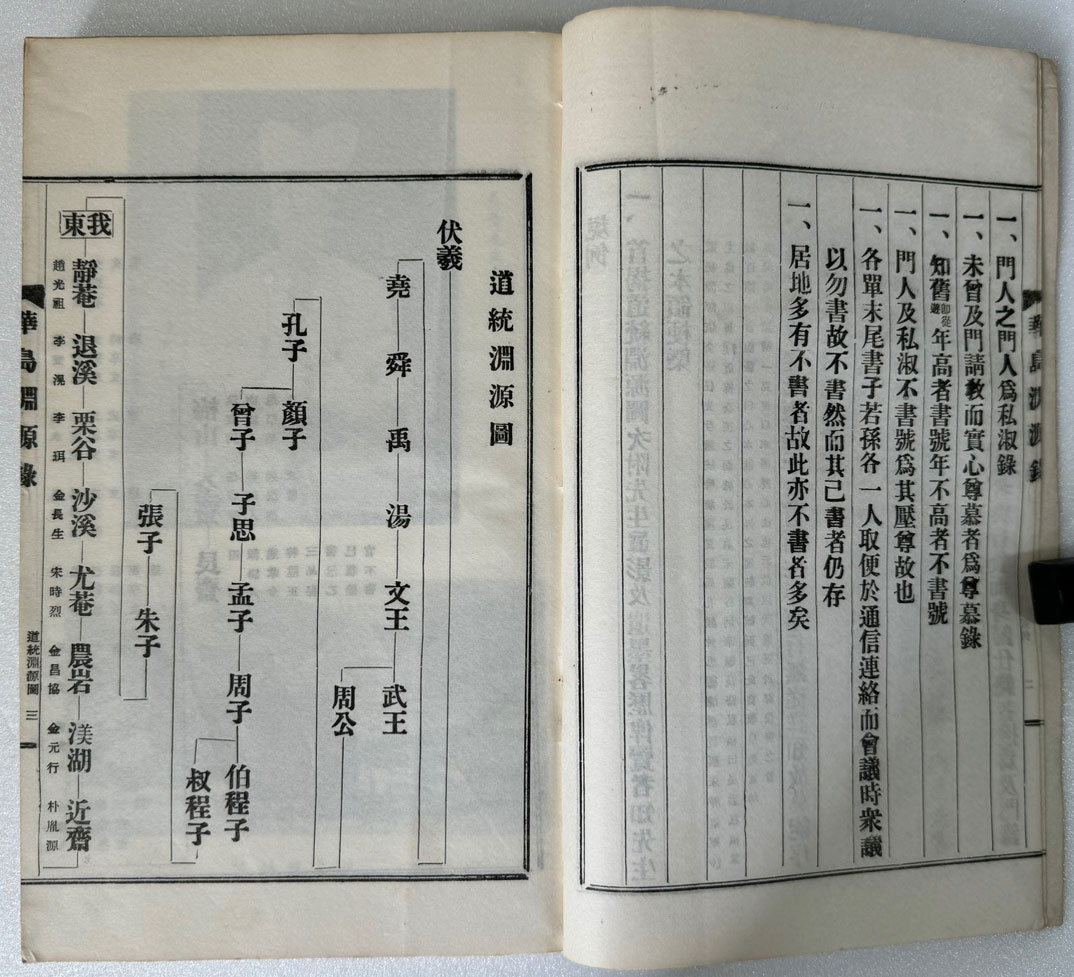 一、門人之門人爲私淑錄
一、未曾及門請敎而實心尊慕者爲尊慕錄
一、知舊卽從遊年高者書號年不高者不書號
一、門人及私淑不書號爲其壓尊故也
一、各單末尾書子若孫各一人取便於通信連絡而會議時衆議
以勿書故不書然而其已書者仍存
一、居地多有不書者故此亦不書者多矣
道統淵源圖
伏羲
堯 舜 禹 湯 文王 武王
周公
孔子 顏子
曾子 子思 孟子 周子 伯程子
叔程子
張子 朱子
我東 靜菴 退溪 栗谷 沙溪 尤菴 農岩 渼湖 近齋
趙光祖 李滉 李珥 金長生 宋時烈 金昌協 金元行 朴胤源
華島淵源錄
道統淵源圖 三